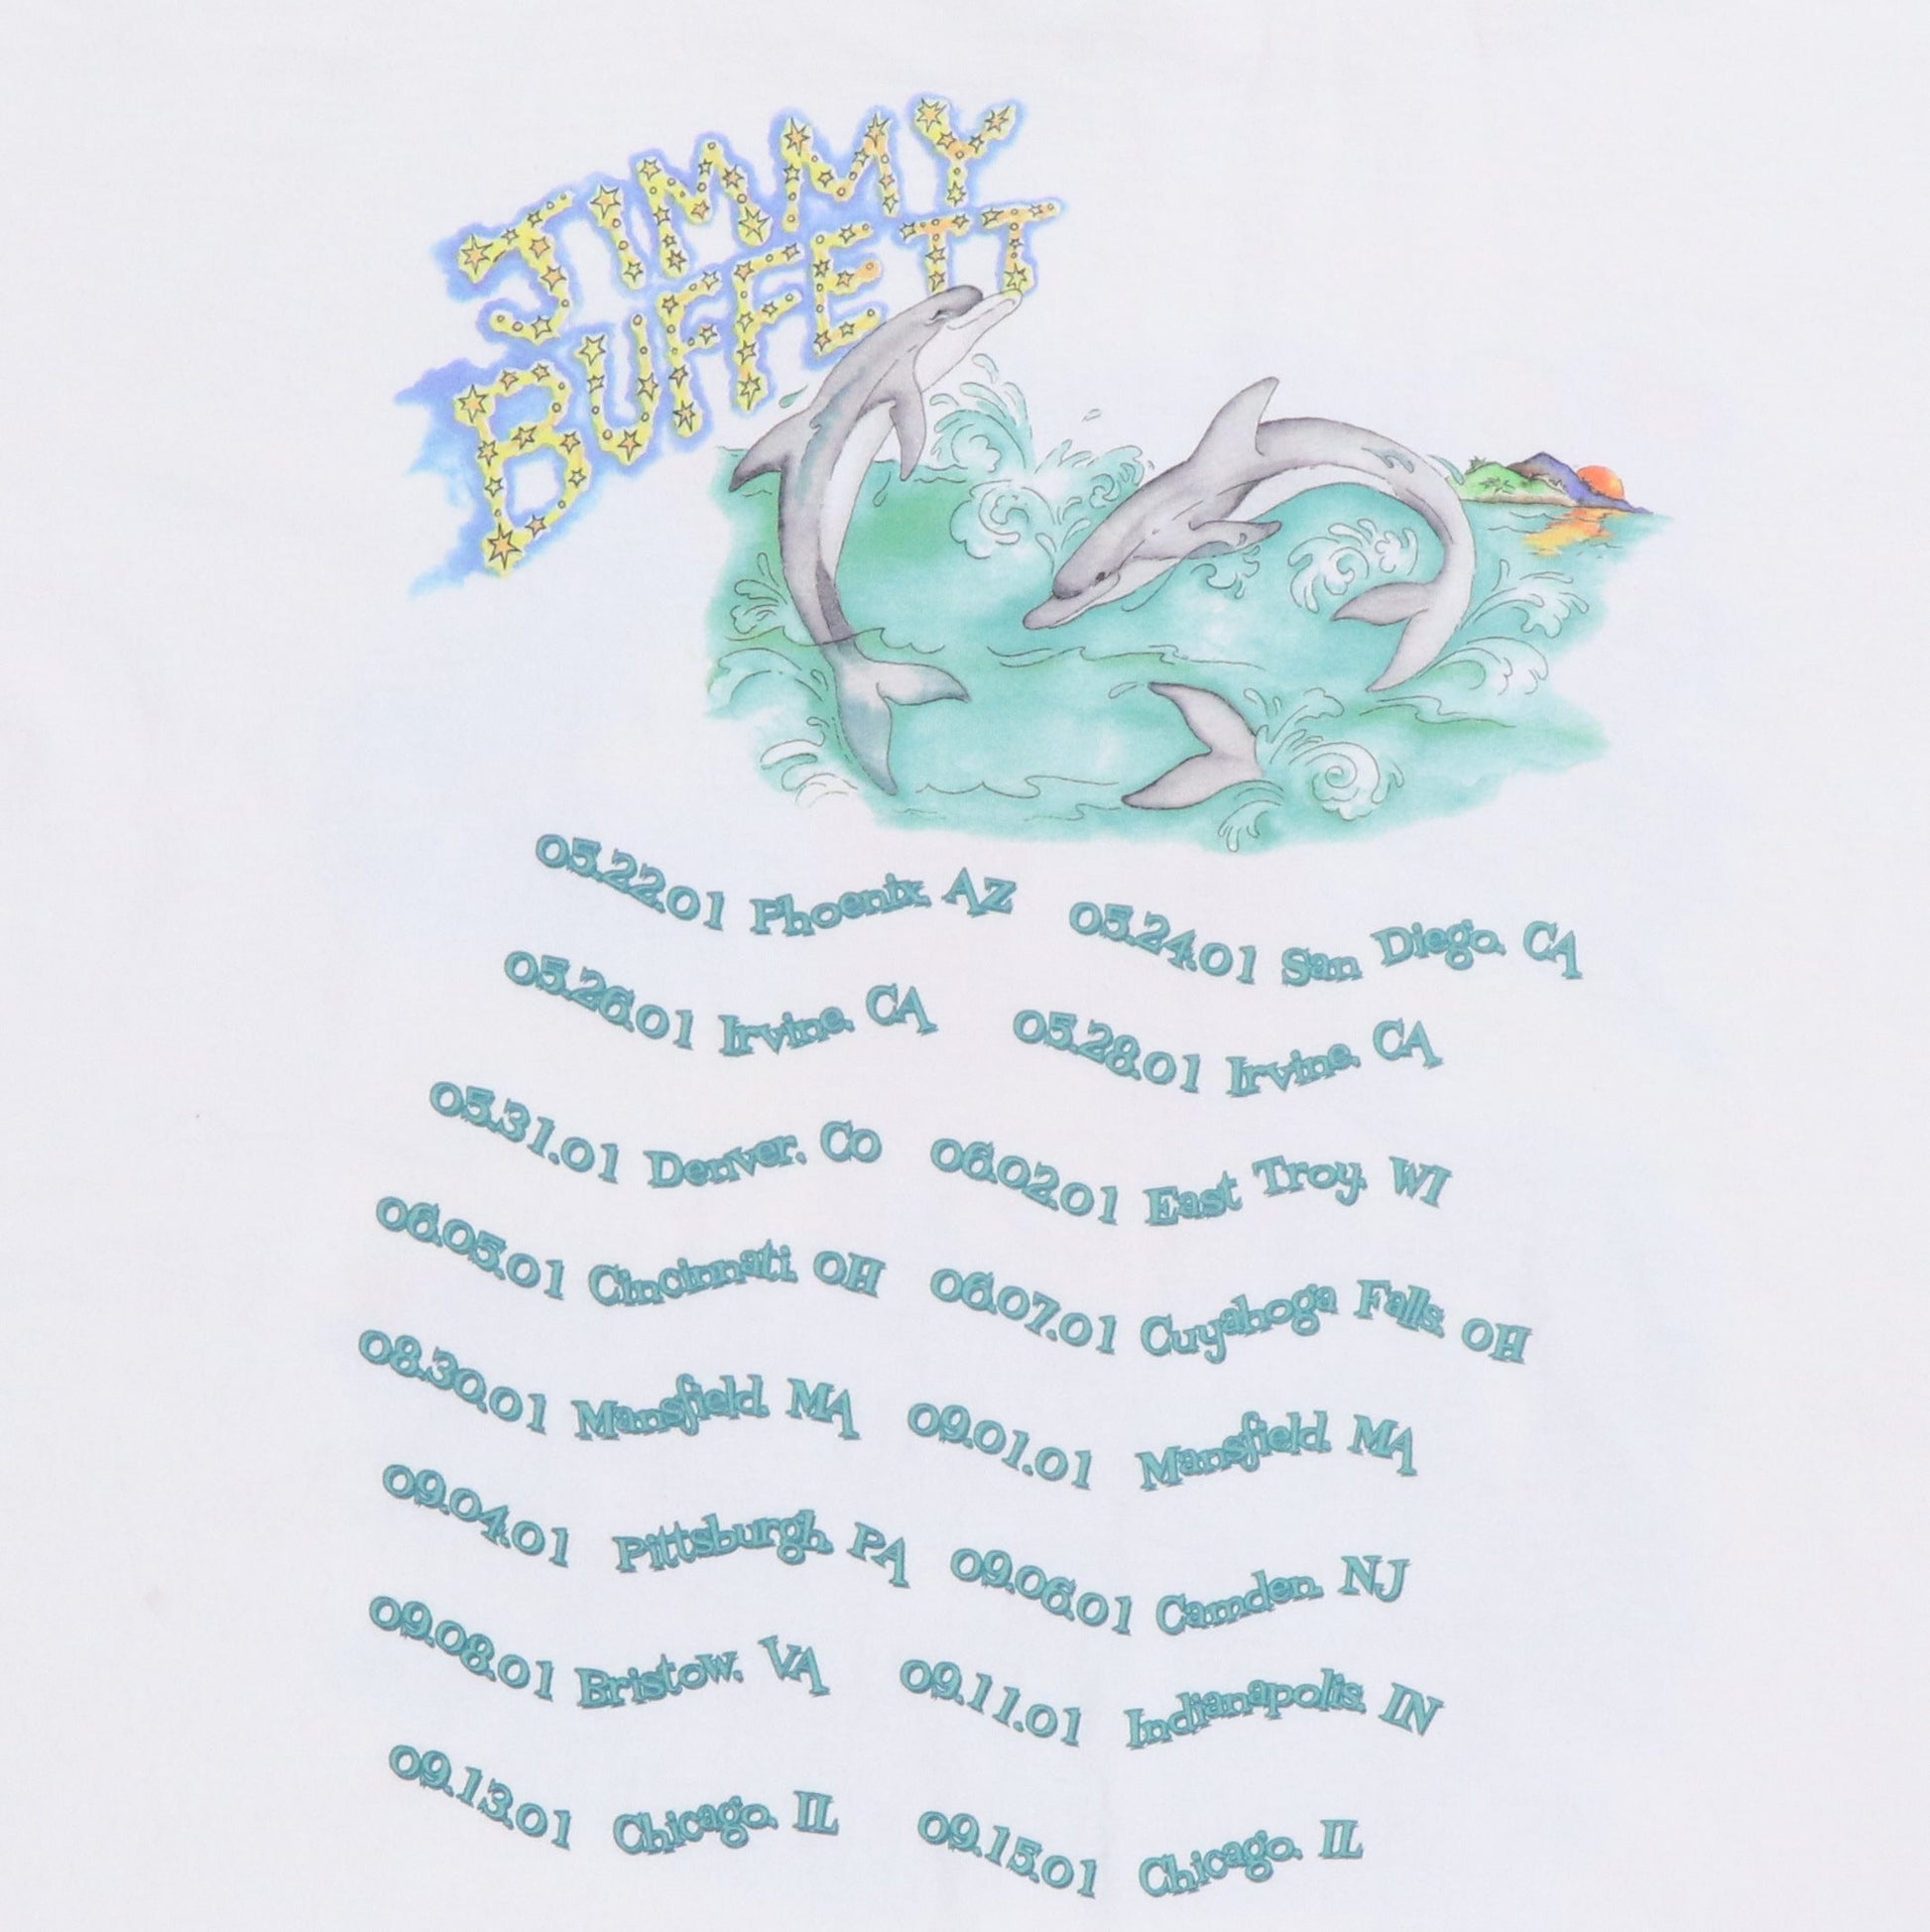 JIMMY
BUFFETT
05.22.01 Phoenix, AZ 05.24.01 San Diego, CA
05.26.01 Irvine, CA 05.28.01 Irvine, CA
05.31.01 Denver, Co 06.02.01 East Troy, WI
06.05.01 Cincinnati, OH 06.07.01 Cuyahoga Falls, OH
08.30.01 Mansfield, MA 09.01.01 Mansfield, MA
09.04.01 Pittsburgh, PA 09.06.01 Camden, NJ
09.08.01 Bristow, VA 09.11.01 Indianapolis, IN
09.13.01 Chicago, IL 09.15.01 Chicago, IL